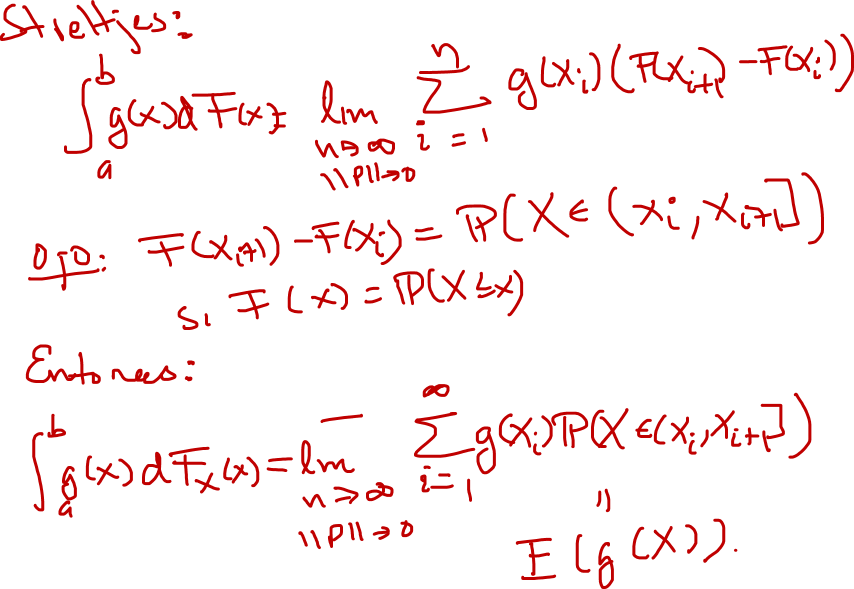 Stieltjes:
∫_a^b g(x)dF(x) = lim_{n→∞, ||P||→0} ∑_{i=1}^{n} g(x_i)(F(x_{i+1}) - F(x_i))
ojo: F(x_{i+1}) - F(x_i) = ℙ(X ∈ (x_i, x_{i+1}])
si F(x) = ℙ(X ≤ x)
Entonces:
∫_a^b g(x)dF_X(x) = lim_{n→∞, ||P||→0} ∑_{i=1}^{∞} g(x_i)ℙ(X ∈ (x_i, x_{i+1}])
"
E(g(X)).